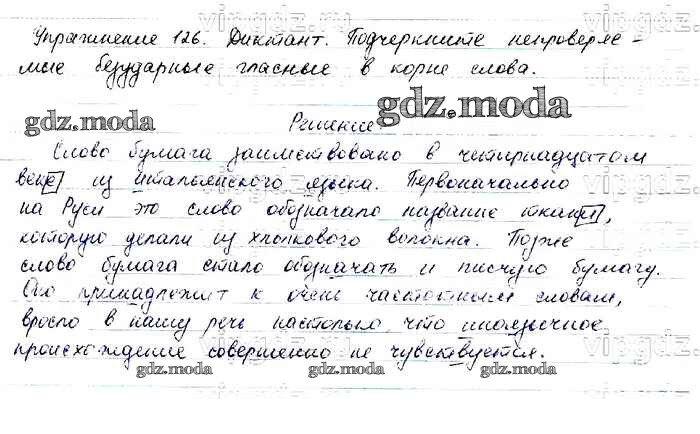 Упражнение 126. Диктант. Подчеркните непроверяе-
мые безударные гласные в корне слова.
gdz.moda
gdz.moda
Решение
Слово бумага заимствовано в четырнадцатом
веке из итальянского языка. Первоначально
на Руси это слово обозначало название ткани,
которую делали из хлопкового волокна. Позже
слово бумага стало обозначать и писчую бумагу.
Оно принадлежит к очень частотным словам,
вросло в нашу речь настолько, что иноязычное
происхождение совершенно не чувствуется.
gdz.moda gdz.moda gdz.moda